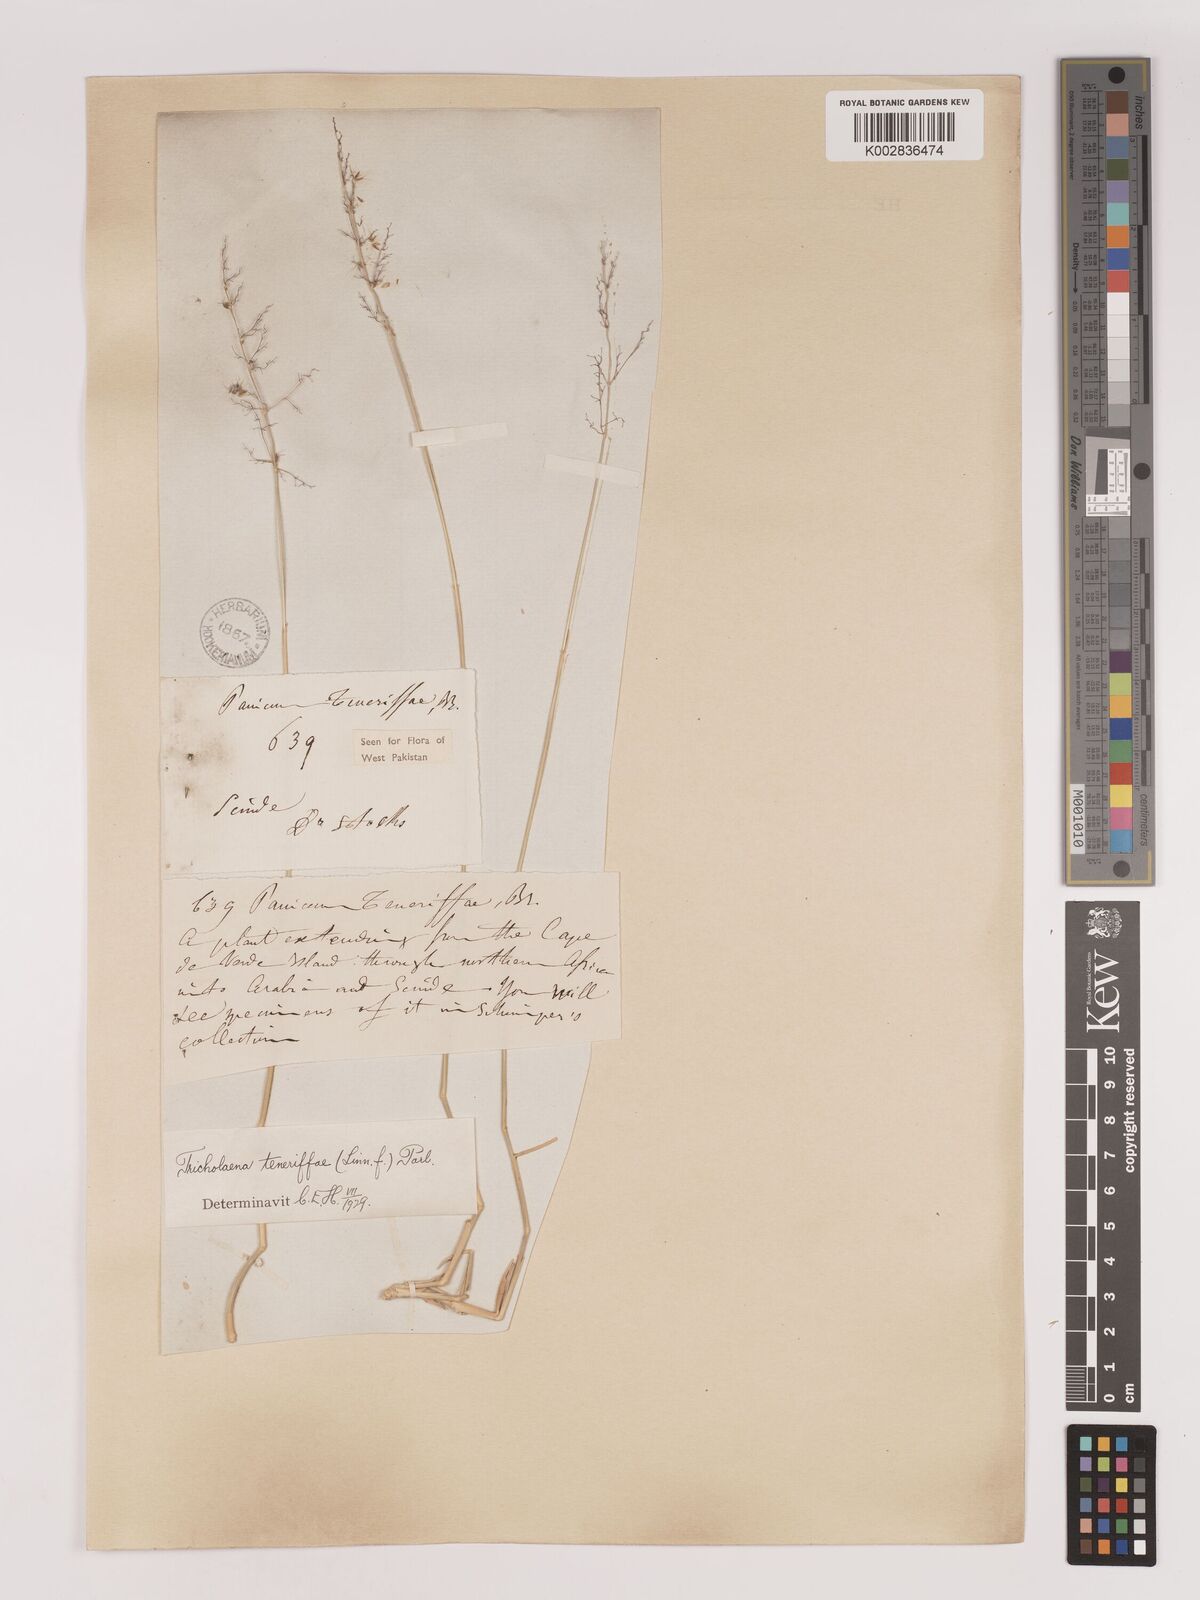 ROYAL BOTANIC GARDENS KEW
K002836474
HERBARIUM
HOOKERIANUM
1867
Panicum Teneriffae, Br.
639
Seen for Flora of
West Pakistan
Scinde
Dr Stocks
639 Panicum Teneriffae, Br.
A plant extending from the Cape
de Verde Island through northern Africa
into Arabia and Scinde. You will
see specimens of it in Schimper's
collection
Tricholaena teneriffae (Linn. f.) Parl.
Determinavit C.E.H. VII 1929.
inches
centimetres
Density
Don Williams
M001010
Royal Botanic Gardens
Kew
copyright reserved
10
9
8
7
6
5
4
3
2
1
0
cm